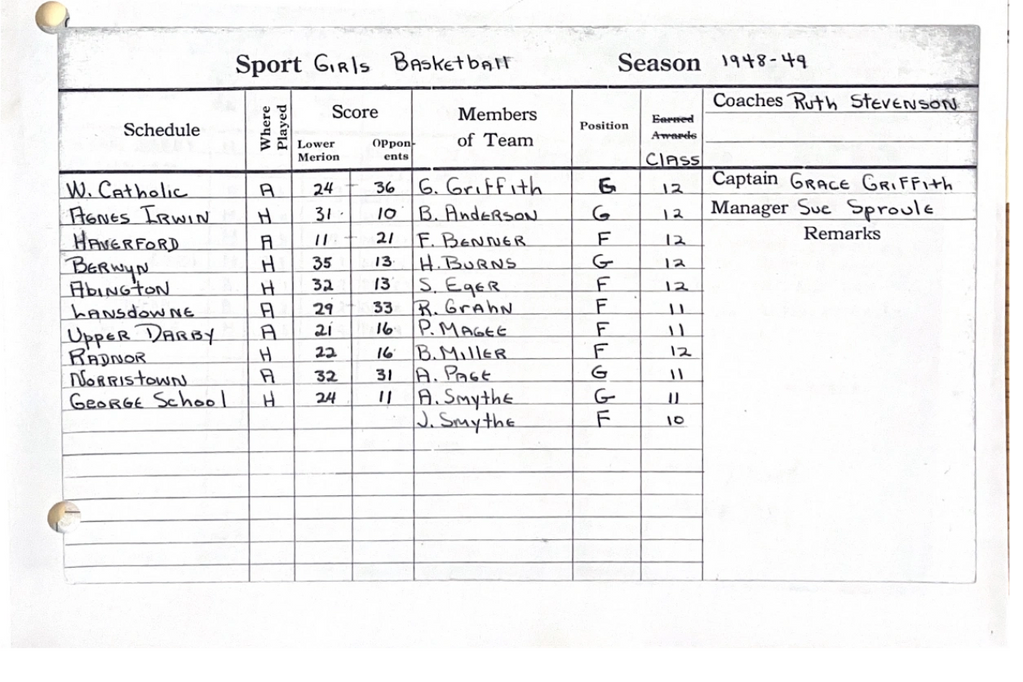 Sport Girls Basketball Season 1948-49
Schedule Where Played Score Members of Team Position Earned Awards Coaches Ruth Stevenson
Lower Merion Opponents CLASS
W. Catholic A 24 - 36 G. Griffith G 12 Captain Grace Griffith
Agnes Irwin H 31 10 B. Anderson G 12 Manager Sue Sproule
Haverford A 11 - 21 F. Benner F 12 Remarks
Berwyn H 35 13 H. Burns G 12
Abington H 32 13 S. Eger F 12
Lansdowne A 29 33 R. Grahn F 11
Upper Darby A 21 16 P. Magee F 11
Radnor H 22 16 B. Miller F 12
Norristown A 32 31 A. Page G 11
George School H 24 11 A. Smythe G 11
J. Smythe F 10